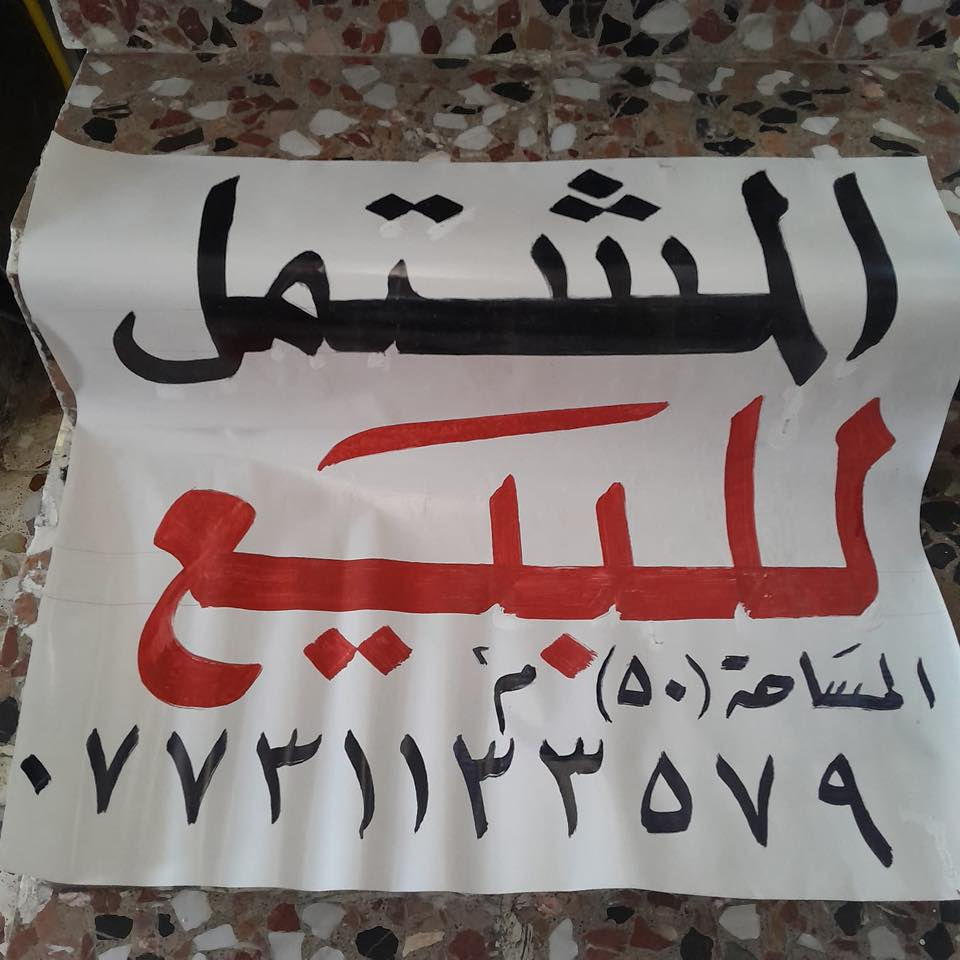 المشتمل
للبيع
المساحة (٥٠) م٢
٠٧٧٣١١٣٣٥٧٩